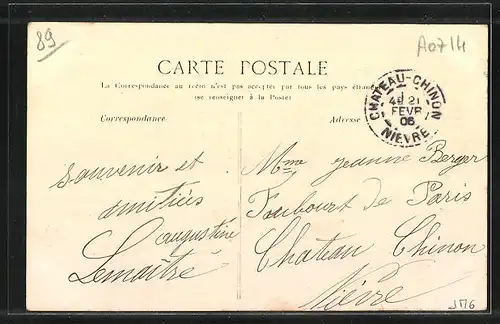 89
A0714
CARTE POSTALE
La Correspondance au recto n'est pas acceptée par tous les pays étrangers
(se renseigner à la Poste)
CHATEAU-CHINON
4E 21
FEVR
06
NIEVRE
Correspondance
Adresse
souvenir et
amitiés
augustine
Lemaître
Mme jeanne Berger
Faubourt de Paris
Chateau Chinon
Nièvre